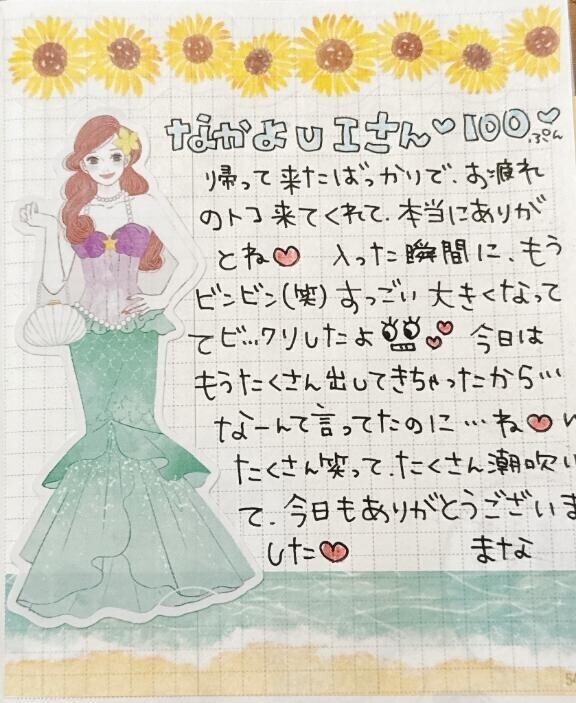 なかよしエさん♡100ぷん♡
帰って来たばっかりで、お疲れ
のトコ来てくれて、本当にありが
とね♥ 入った瞬間に、もう
ビンビン(笑)すっごい大きくなって
てビックリしたよ 今日は
もうたくさん出してきちゃったから…
なーんて言ってたのに…ね♥
たくさん笑って、たくさん潮吹い
て、今日もありがとうございま
した♥ まな